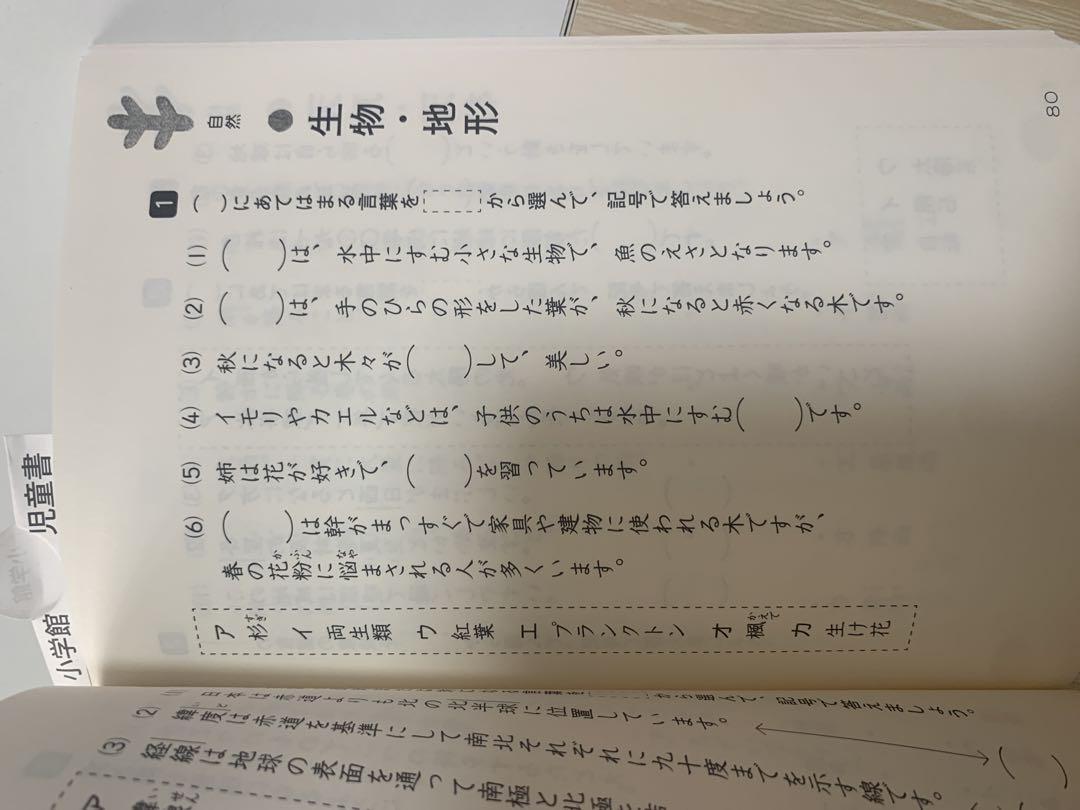 自然
生物・地形
1 ( )にあてはまる言葉を から選んで、記号で答えましょう。
(1) ( )は、水中にすむ小さな生物で、魚のえさとなります。
(2) ( )は、手のひらの形をした葉が、秋になると赤くなる木です。
(3) 秋になると木々が( )して、美しい。
(4) イモリやカエルなどは、子供のうちは水中にすむ( )です。
(5) 姉は花が好きで、( )を習っています。
(6) ( )は幹がまっすぐで家具や建物に使われる木ですが、
春の花粉に悩まされる人が多くいます。
かふん
なや
ア 杉 イ 両生類 ウ 紅葉 エ プランクトン オ 楓 カ 生け花
すぎ
かえで
80
小学館
児童書
日本は赤道よりも北の北半球に位置しています。
から選んで、記号で答えましょう。
(2) 緯度は赤道を基準にして南北それぞれに九十度までを示す線です。
(3) 経線は地球の表面を通って南極と北極
ア